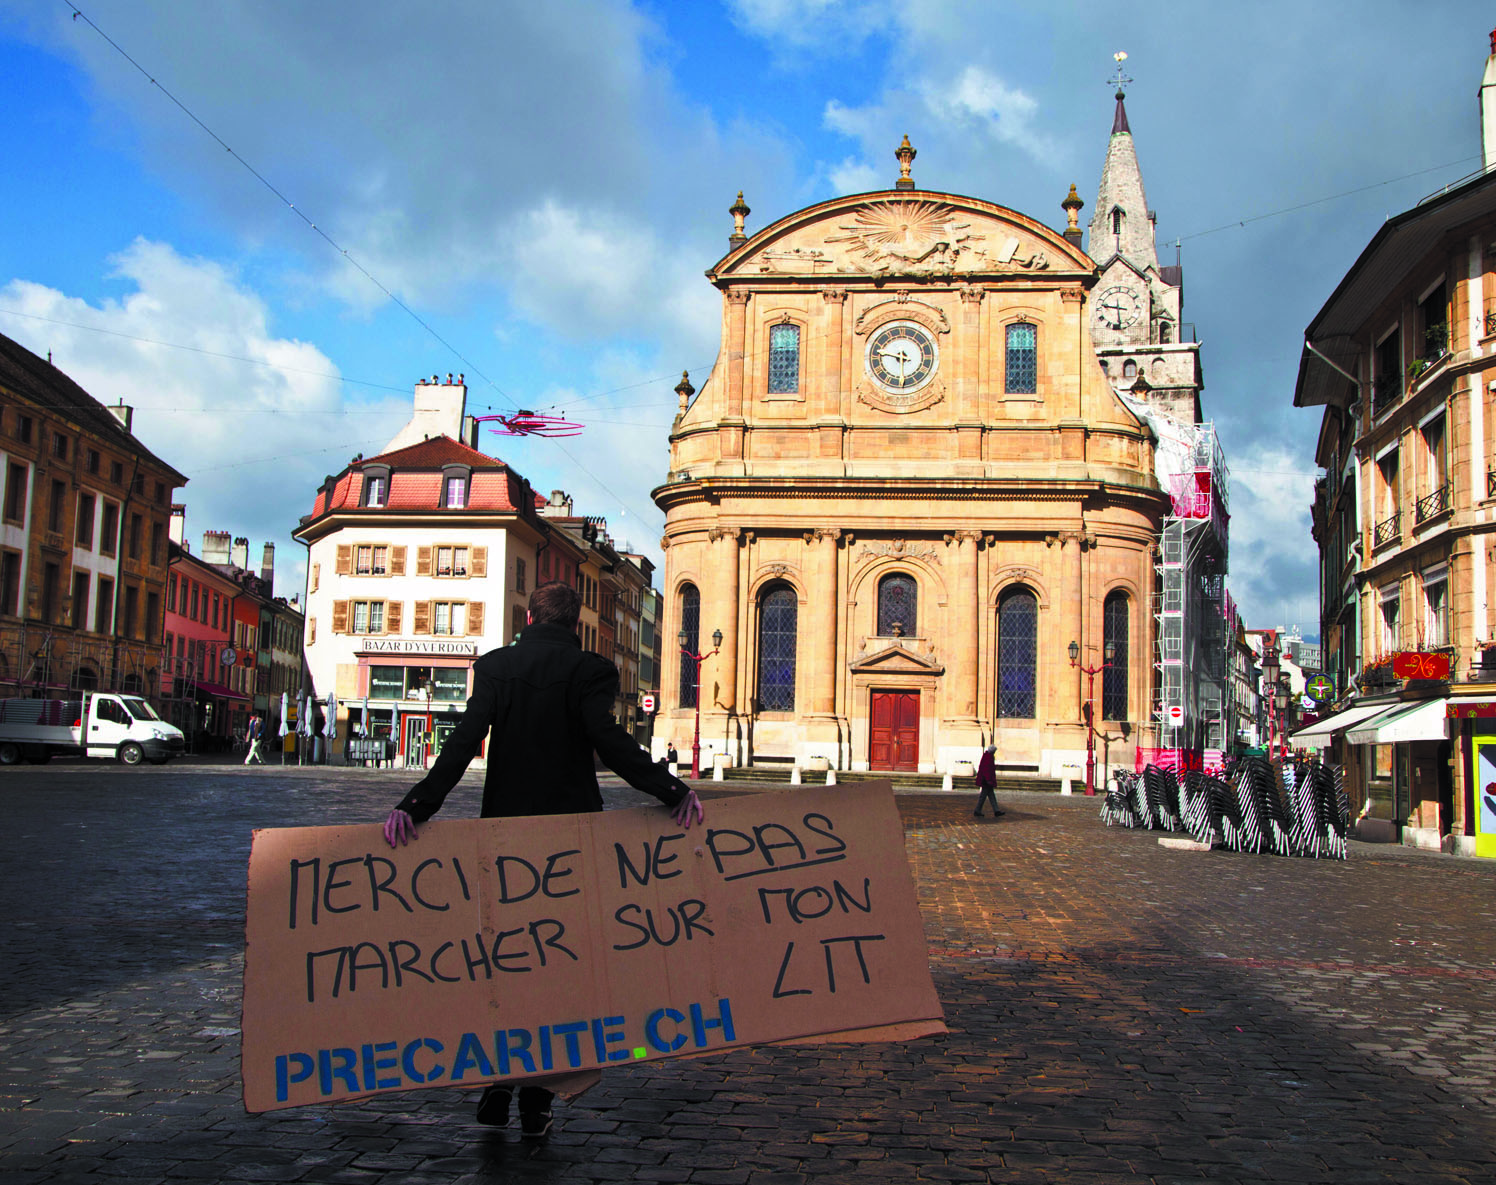 BAZAR D'YVERDON
MERCI DE NE PAS
MARCHER SUR MON
LIT
PRECARITE.CH